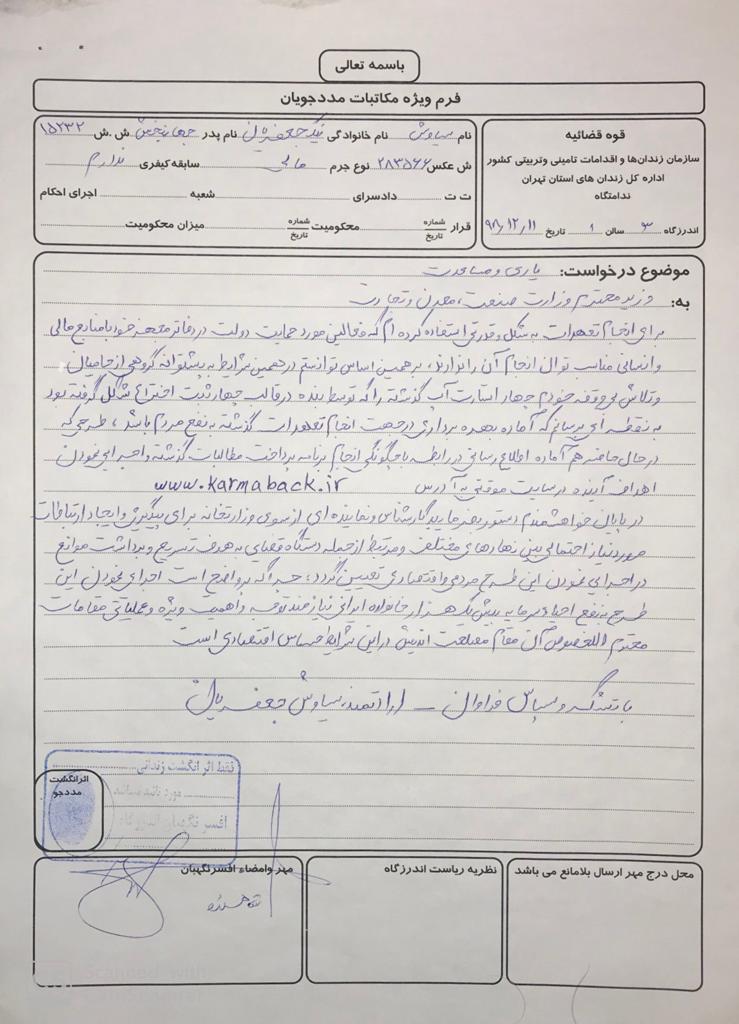 باسمه تعالی
فرم ویژه مکاتبات مددجویان
قوه قضائیه
سازمان زندان‌ها و اقدامات تامینی وتربیتی کشور
اداره کل زندان های استان تهران
ندامتگاه
اندرزگاه ۳ سالن ۱ تاریخ ۹۸/۱۲/۱۱
نام سیاوش نام خانوادگی نام پدر جهانبخش ش.ش ۱۵۲۳۲
ش عکس ۲۸۳۵۶۶ نوع جرم مالی سابقه کیفری ندارم
ت ت دادسرای شعبه اجرای احکام
قرار شماره تاریخ محکومیت شماره تاریخ میزان محکومیت
موضوع درخواست: یاری و مساعدت
به: وزیر محترم وزارت صنعت، معدن و تجارت
برای انجام تعهدات به شکل و قدرتی استفاده کرده ام که فعالین مورد حمایت دولت در دفاتر خود با منابع مالی
و انسانی مناسب توان انجام آن را ندارند، برهمین اساس توانستم در همین شرایط به پشتوانه گروهی از حامیان
و تلاش بی وقفه خودم چهار استارت آپ گذشته را که توسط بنده در قالب چهار ثبت اختراع شکل گرفته بود
به نقطه ای برسانم که آماده بهره برداری در جهت انجام تعهدات گذشته به نفع مردم باشد، طرحی که
در حال حاضر هم آماده اطلاع رسانی در رابطه با چگونگی انجام برنامه پرداخت مطالبات گذشته و اجرایی نمودن
اهداف آینده در سایت موقتی به آدرس www.karmaback.ir
در پایان خواهشمندم دستور بفرمایید کارشناس و نماینده ای از سوی وزارتخانه برای پیگیری و ایجاد ارتباطات
مورد نیاز احتمالی بین نهادهای مختلف و مرتبط از جمله دستگاه قضایی به هدف تسریع و برداشت موانع
در اجرایی نمودن این طرح مردمی و اقتصادی تعیین گردد، چرا که پر واضح است اجرایی نمودن این
طرح به نفع احیای سرمایه بیش یک هزار خانواده ایرانی نیازمند توجه و اهمیت ویژه و عملیاتی مقامات
محترم اللخصوص آن مقام مصلحت اندیش در این شرایط حساس اقتصادی است
با تشکر و سپاس فراوان - ارادتمند، سیاوش جعفریان
نقط اثر انگشت زندانی
مورد تائید میباشد
افسر نگهبان اندرزگاه
اثرانگشت
مددجو
محل درج مهر ارسال بلامانع می باشد
نظریه ریاست اندرزگاه
مهر وامضاء افسرنگهبان